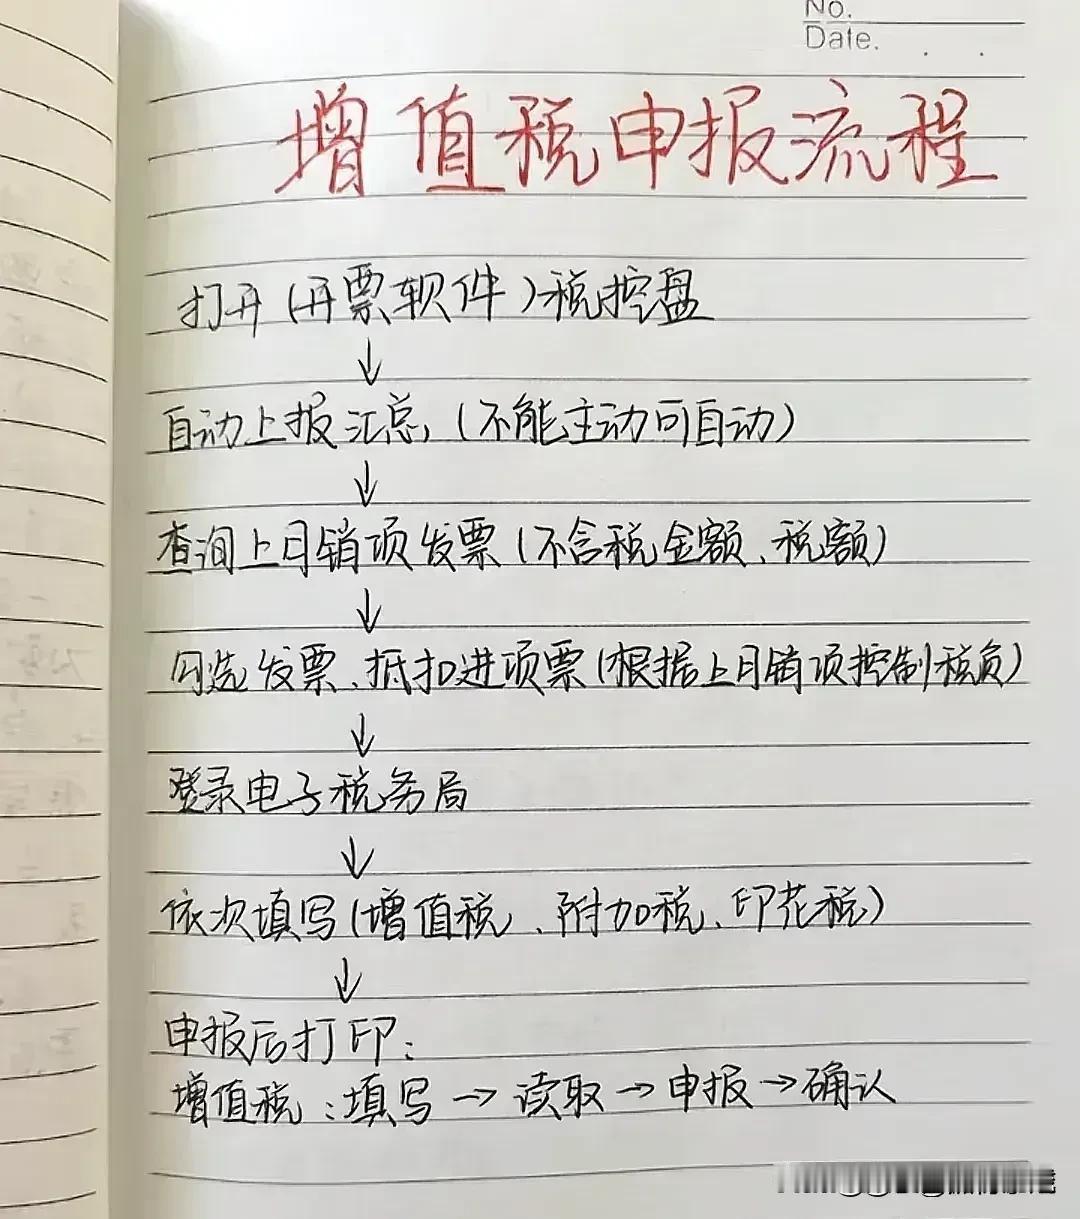 No.
Date.
增值税申报流程
打开(开票软件)税控盘
↓
自动上报汇总,(不能主动可自动)
↓
查询上月销项发票(不含税金额、税额)
↓
勾选发票、抵扣进项票(根据上月销项控制税负)
↓
登录电子税务局
↓
依次填写(增值税、附加税、印花税)
↓
申报后打印:
增值税:填写→读取→申报→确认